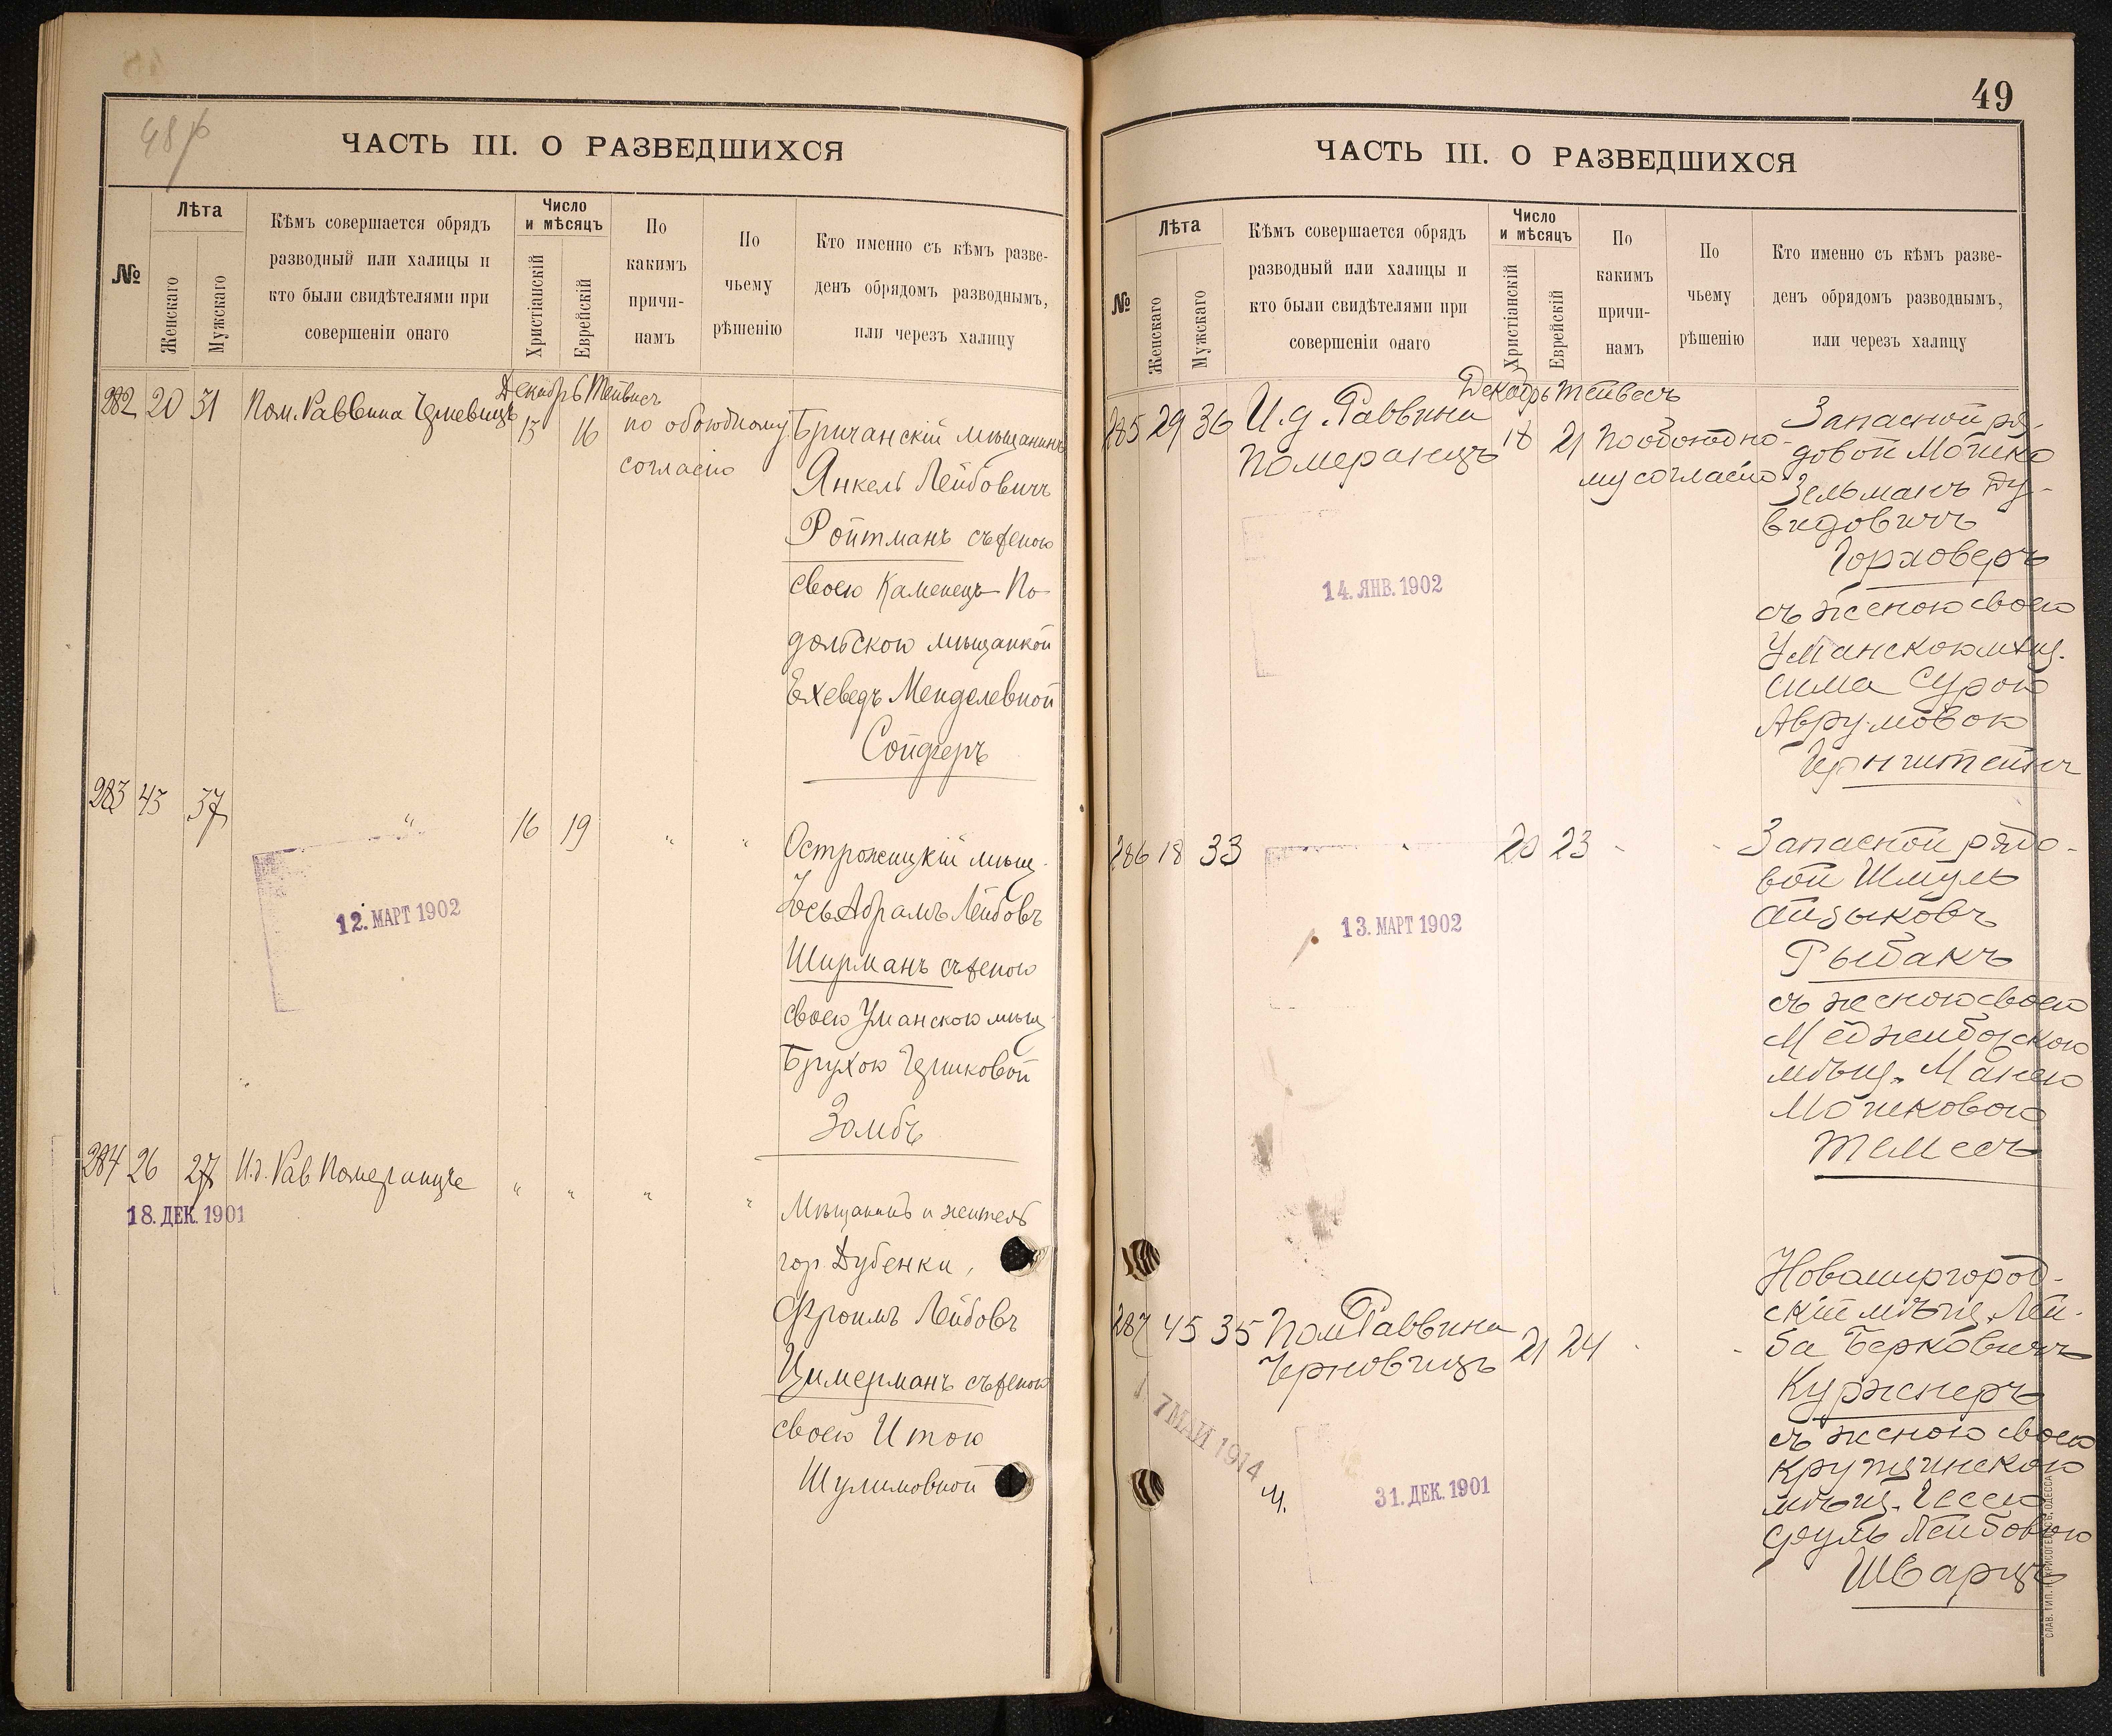 48 об
ЧАСТЬ III. О РАЗВЕДШИХСЯ
№
Лѣта
Женскаго
Мужскаго
Кѣмъ совершается обрядъ
разводный или халицы и
кто были свидѣтелями при
совершеніи онаго
Число
и мѣсяцъ
Христіанскій
Еврейскій
По
какимъ
причи-
намъ
По
чьему
рѣшенію
Кто именно съ кѣмъ разве-
денъ обрядомъ разводнымъ,
или черезъ халицу
Декабрь Тейвесъ
282 20 31 Пом. Раввина 13 16 по обоюдному
согласію
Бричанскій мѣщанинъ
Янкель Лейбовичъ
Ройтманъ съ женою
своею Каменецъ-По-
дольскою мѣщанкой
Ехеведъ Менделевной
Сойферъ
283 43 37 " 16 19 " "
Острожицкій мѣщ.
Юсь Абрамъ Лейбовъ
Ширманъ съ женою
своею Уманскою мѣщ.
Брухою Гершковой
Зомбъ
12. МАРТ 1902
284 26 27 И.д. Рав Померанцъ " " " "
18. ДЕК. 1901
Мѣщанинъ и житель
гор Дубенки,
Фроимъ Лейбовъ
Цимерманъ съ женою
своею Итою
Шулимовной
49
ЧАСТЬ III. О РАЗВЕДШИХСЯ
№
Лѣта
Женскаго
Мужскаго
Кѣмъ совершается обрядъ
разводный или халицы и
кто были свидѣтелями при
совершеніи онаго
Число
и мѣсяцъ
Христіанскій
Еврейскій
По
какимъ
причи-
намъ
По
чьему
рѣшенію
Кто именно съ кѣмъ разве-
денъ обрядомъ разводнымъ,
или черезъ халицу
Декабрь Тейвесъ
285 29 36 И.д. Раввина
Померанцъ 18 21 По обоюдно-
му согласію
Запасной ря-
довой Мошко
Зельманъ Ду-
видовичъ
Горховеръ
съ женою своею
Уманскою мѣщ.
Сима Сурою
Аврумовою
14. ЯНВ. 1902
286 18 33 " 20 23 - -
Запасной рядо-
вой Шмуль
Айзыковъ
Рыбакъ
съ женою своею
Меджибожскою
мѣщ. Манею
Мошковою
Темесъ
13. МАРТ 1902
287 45 35 Пом Раввина
Черновицъ 21 24 - -
Новомиргород-
скій мѣщ. Лей-
ба Берковичъ
Куржнеръ
съ женою своею
мѣщ. Гессею
Фуль Лейбовою
Шварцъ
7 МАЙ 1914
31. ДЕК. 1901